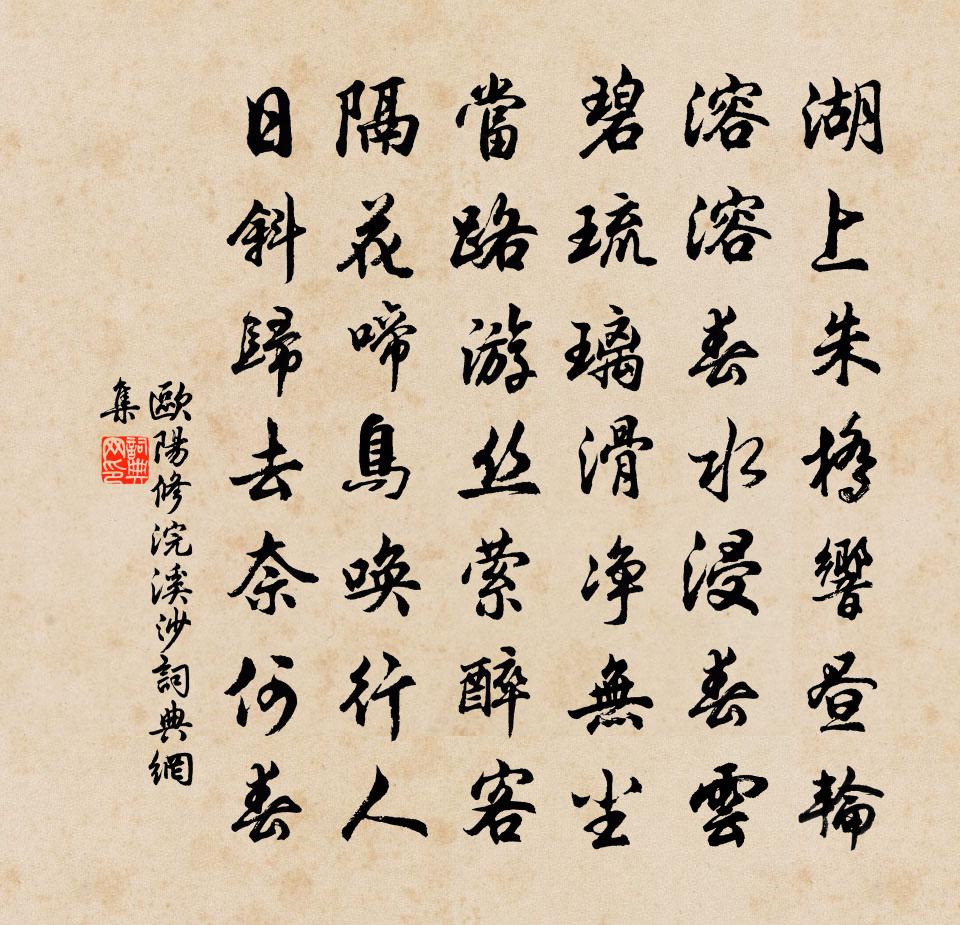 湖上朱橋響晝輪
溶溶春水浸春雲
碧琉璃滑净無尘
當路游丝縈醉客
隔花啼鳥喚行人
日斜歸去奈何春
歐陽修浣溪沙詞典網
集
詞典网印